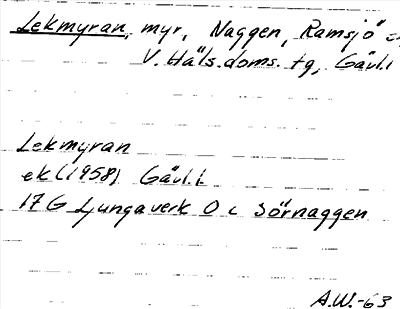 Lekmyran, myr, Naggen, Ramsjö
V. Häls. doms. tg, Gävl.l
Lekmyran
ek (1958) Gävl.l
17 G Ljungaverk O c Sörnaggen
A.W.-63